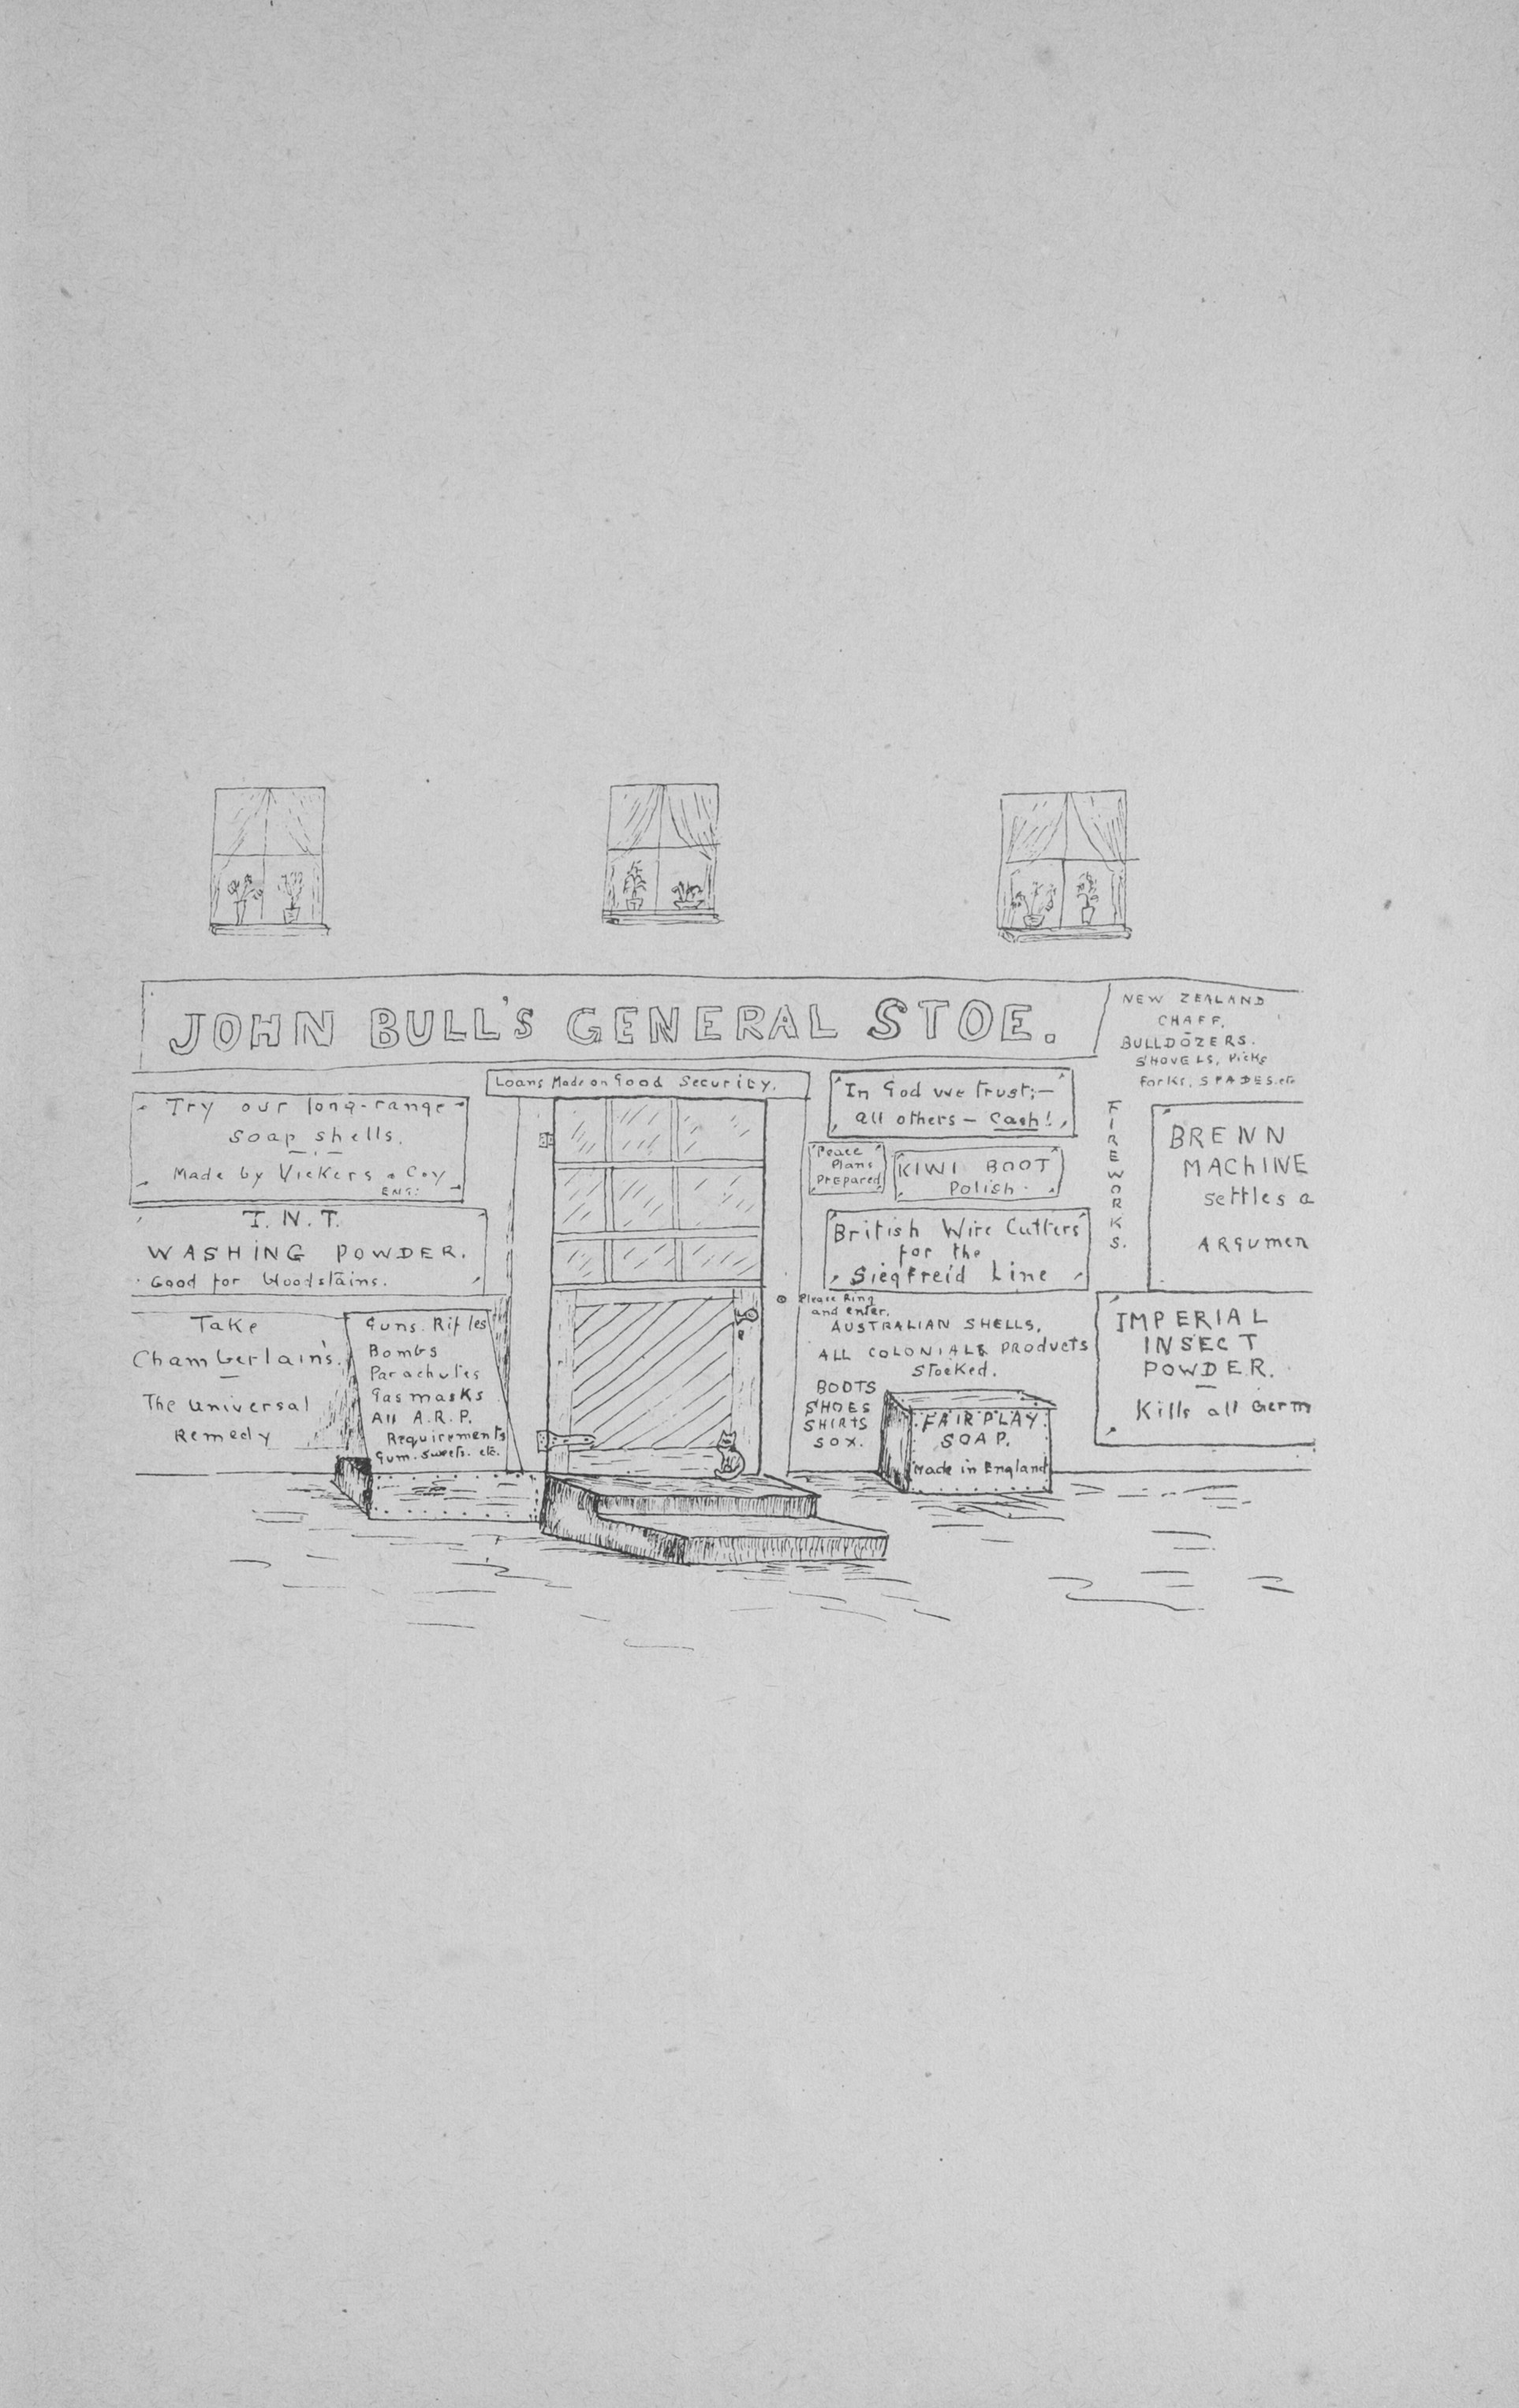 JOHN BULL'S GENERAL STOE.
NEW ZEALAND
CHAFF.
BULLDOZERS.
SHOVELS, Picks
Forks, SPADES.etc
Loans Made on Good Security.
Try our long-range
Soap shells.
Made by Vickers & Coy
ENG:
T.N.T.
WASHING POWDER.
Good for bloodstains.
Take
Chamberlain's.
The Universal
Remedy
Guns. Rifles
Bombs
Parachutes
Gas masks
All A.R.P.
Requirements
Gum. sweets. etc.
In God we trust:—
all others — Cash!
Peace
Plans
Prepared
KIWI BOOT
Polish.
British Wire Cutters
for the
Siegfreid Line
Please Ring
and enter.
AUSTRALIAN SHELLS.
ALL COLONIAL& PRODUCTS
Stocked.
BOOTS
SHOES
SHIRTS
SOX.
FAIRPLAY
SOAP.
Made in England
FIREWORKS.
BRENN
MACHINE
settles a
ARGumen
IMPERIAL
INSECT
POWDER.
Kills all Germ